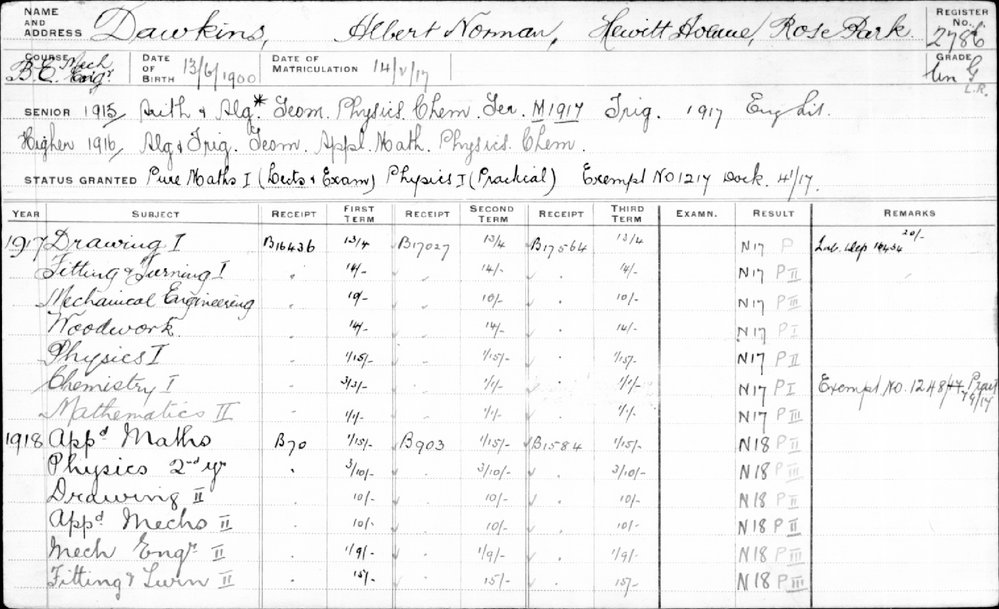 NAME AND ADDRESS Dawkins, Albert Norman, Hewitt Avenue, Rose Park. REGISTER No. 2786
COURSE B.E. Mech Engr. DATE OF BIRTH 13/6/1900 DATE OF MATRICULATION 14/V/17 GRADE Un G L.R.
SENIOR 1915/ Arith & Alg* Geom. Physics. Chem. Ger. M1917 Trig. 1917 Eng Lit.
Higher 1916/ Alg & Trig. Geom. Appl. Math. Physics. Chem.
STATUS GRANTED Pure Maths I (Lects & Exam) Physics I (Practical) Exempt No 1217 Dock. 41/17.
YEAR SUBJECT RECEIPT FIRST TERM RECEIPT SECOND TERM RECEIPT THIRD TERM EXAMN. RESULT REMARKS
1917 Drawing I B16436 13/4 B17027 13/4 B17564 13/4 N17 P Lab. dep 19434 20/-
Fitting & Turning I 14/- 14/- 14/- N17 P II
Mechanical Engineering 10/- 10/- 10/- N17 P III
Woodwork 14/- 14/- 14/- N17 P I
Physics I 1/15/- 1/15/- 1/15/- N17 P II
Chemistry I 3/3/- 1/1/- 1/1/- N17 P I Exempt No. 1248/ Pract 79/17
Mathematics II 1/1/- 1/1/- 1/1/- N17 P III
1918 Appd Maths B70 1/15/- B903 1/15/- B1584 1/15/- N18 P II
Physics 2nd yr 3/10/- 3/10/- 3/10/- N18 P III
Drawing II 10/- 10/- 10/- N18 P II
Appd Mechs II 10/- 10/- 10/- N18 P II
Mech Engr II 1/9/- 1/9/- 1/9/- N18 P III
Fitting & Turn II 15/- 15/- 15/- N18 P III